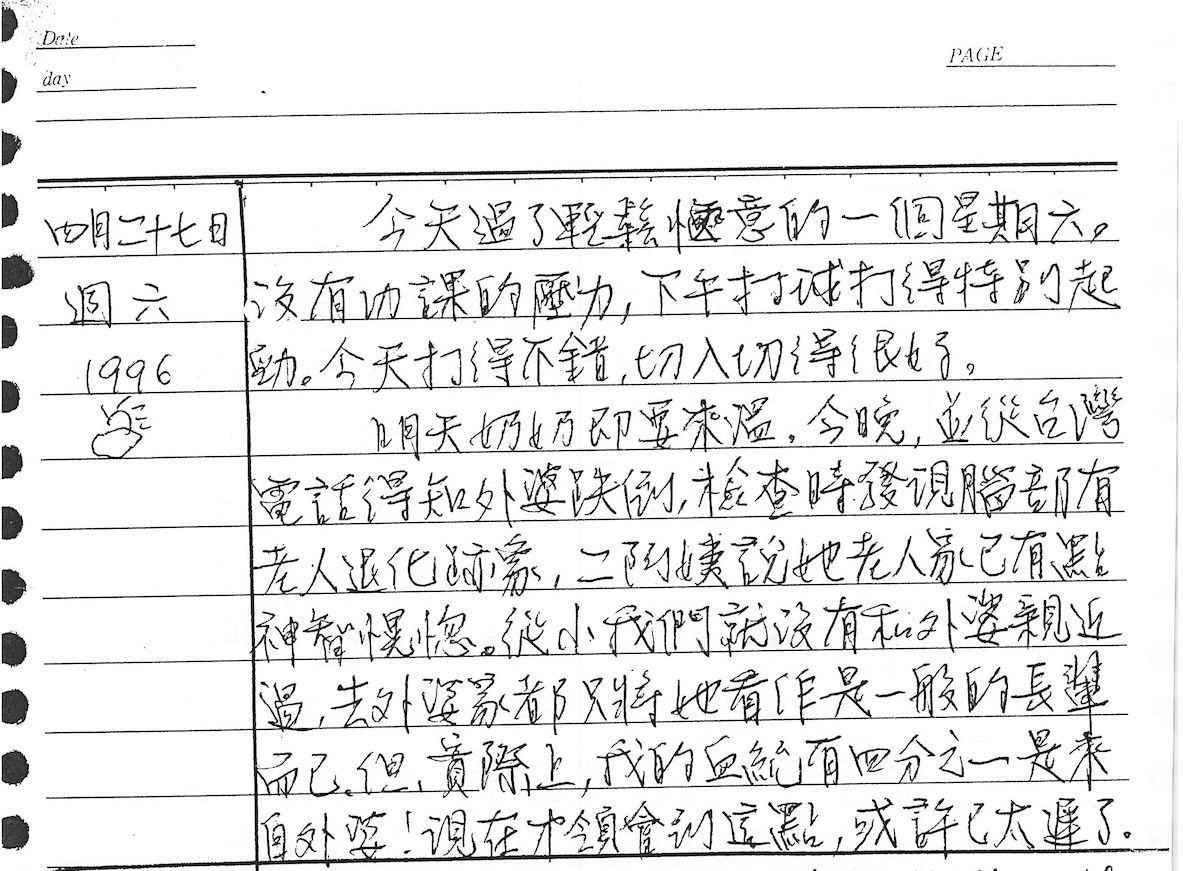 Date
day
PAGE
四月二十七日
週六
1996
今天過了輕鬆愜意的一個星期六。
沒有功課的壓力，下午打球打得特別起
勁。今天打得不錯，切入切得很好。
明天奶奶即要來溫。今晚，並從台灣
電話得知外婆跌倒，檢查時發現腦部有
老人退化跡象，二阿姨說她老人家已有點
神智恍惚。從小我們就沒有和外婆親近
過，去外婆家都只將她看作是一般的長輩
而已。但，實際上，我的血統有四分之一是來
自外婆！現在才領會到這點，或許已太遲了。